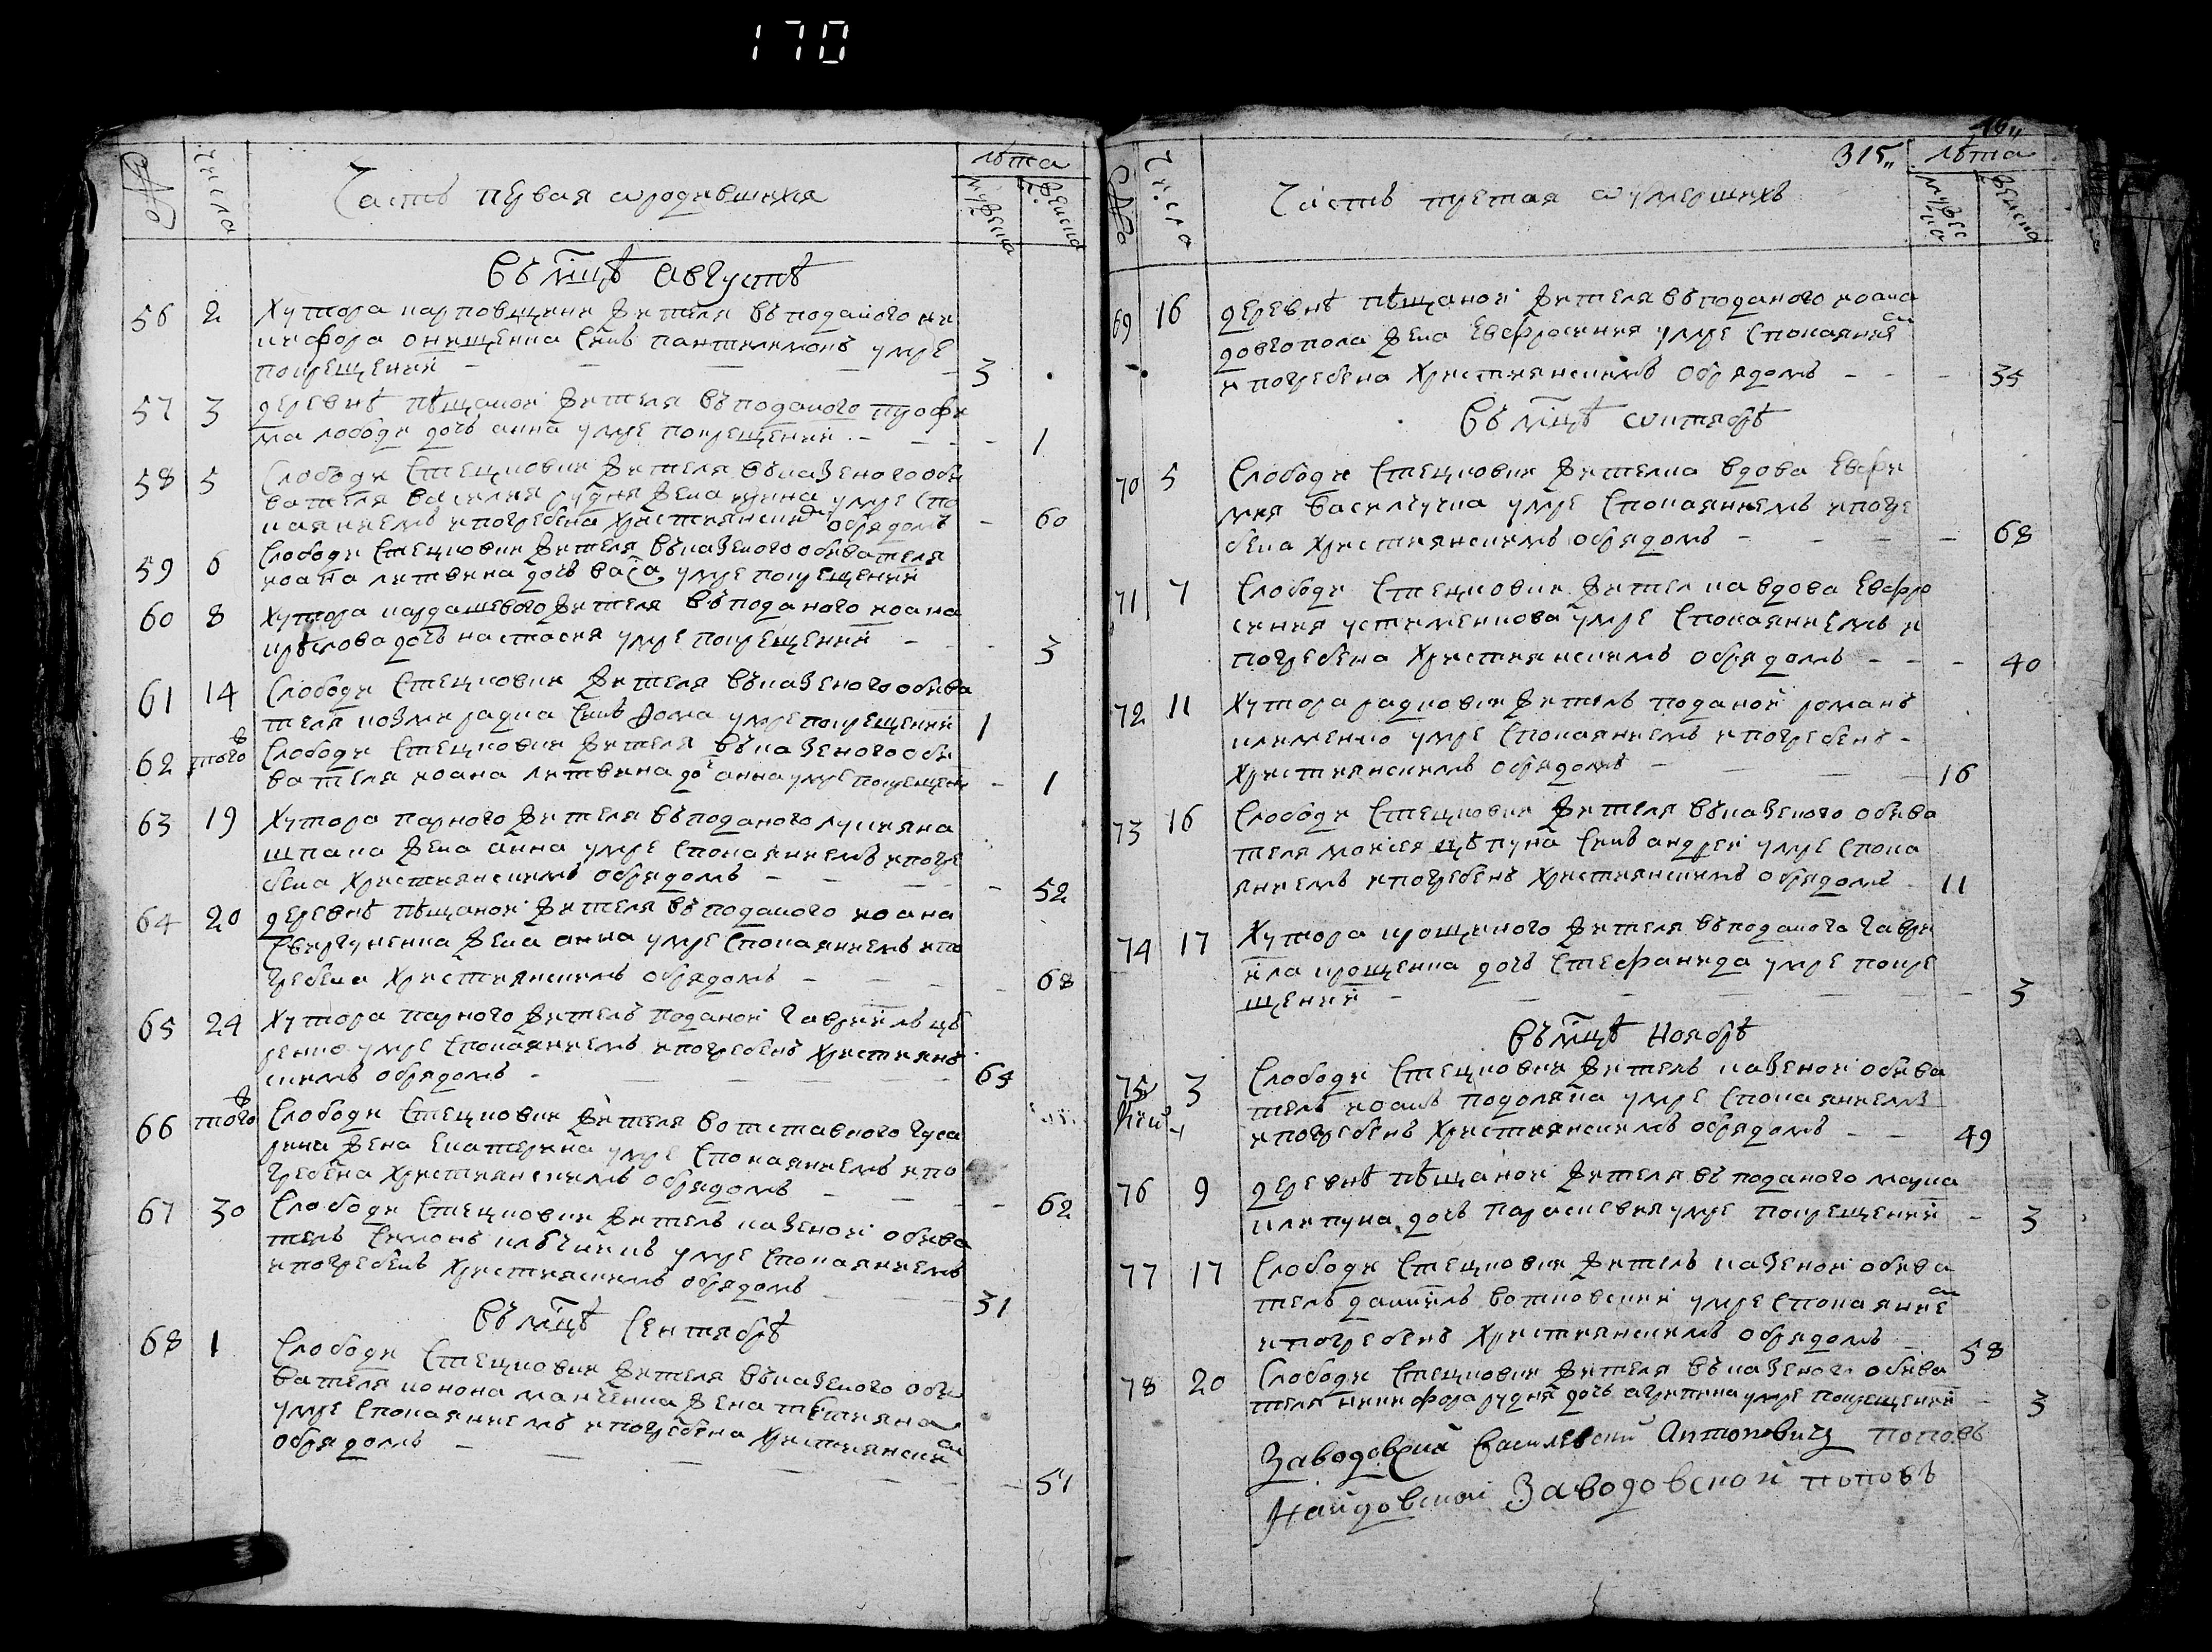 170
№
Числа
Часть первая о родившихся
лѣта
мужеска
женска
Въ мцѣ Августѣ
56 2 Хутора карповщини жителя въ поданого ни
кифора онищенка снъ пантелимонъ умре
по крещении 3
57 3 деревнѣ пѣщаной жителя въ поданого трофи
ма лободи дочъ анна умре по крещении 1
58 5 Слободи Стецковки жителя въ казеного оби
вателя василия рудня жена ирина умре спо
каяниемъ и погребена християнски обрядомъ 60
59 6 Слободи Стецковки жителя въ казеного обивателя
иоана литвина дочъ васа умре по крещении
60 8 Хутора кардашевого жителя въ поданого иоана
дочъ настасия умре по крещении 3
61 14 Слободи Стецковки жителя въ казеного обива
теля козми радка снъ фома умре по крещении 1
62 того Слободи Стецковки жителя въ казеного оби
вателя иоана литвина до анна умре по крещени 1
63 19 Хутора парного жителя въ поданого лукияна
шпака жена анна умре спокаяниемъ и погре
бена Християнскимъ обрядомъ 52
64 20 деревнѣ пѣщаной жителя въ поданого иоана
свергуненка жена анна умре спокаяниемъ и по
гребена Християнскимъ обрядомъ 68
65 24 Хутора парного жителъ поданой гавриилъ цѣ
ренко умре спокаяниемъ и погребенъ Християнъ
скимъ обрядомъ 64
66 того Слободи Стецковки жителя вотставного гуса
рина жена Екатерина умре спокаяниемъ и по
гребена Християнскимъ обрядомъ 62
67 30 Слободи Стецковки жителъ казеной обива
телъ Симонъ умре спокаяниемъ
и погребенъ Християскимъ обрядомъ 31
Въ мцѣ Сентябрѣ
68 1 Слободи Стецковки жителя въ казеного оби
вателя конона манченка жена татияна
умре спокаяниемъ и погребена Християнски
обрядомъ 51
№
Числа
315
Часть третая о умершихъ
лѣта
мужеска
женска
69 16 деревнѣ пѣщаной жителя въ поданого иоана
довгопола жена Евфросиния умре спокаяние
и погребена Християнскимъ обрядомъ 35
Въ мцѣ октябрѣ
70 5 Слободи Стецковки жителка вдова Евфи
мия василчиха умре спокаяниемъ и погре
бена Християнскимъ обрядомъ 68
71 7 Слободи Стецковки жителка вдова Евфро
синия устименкова умре спокаяниемъ и
погребена Християнскимъ обрядомъ 40
72 11 Хутора радковки жителъ поданой романъ
клименко умре спокаяниемъ и погребенъ
Християнскимъ обрядомъ 16
73 16 Слободи Стецковки жителя въ казеного обива
теля моисея цѣпуна снъ андрей умре спока
яниемъ и погребенъ Християнскимъ обрядомъ 11
74 17 Хутора крощиного жителя въ поданого гаври
ила крощенка дочъ Стефанида умре по кре
щении 3
Въ мцѣ Ноябрѣ
75 3 Слободи Стецковки жителъ казеной обива
телъ иоанъ подоляка умре спокаяниемъ
и погребенъ Християнскимъ обрядомъ 49
76 9 деревнѣ пѣщаной жителя въ поданого марка
клипуна дочъ параскевия умре по крещении 3
77 17 Слободи Стецковки жителъ казеной обива
телъ даниилъ вотковский умре спокаяние
и погребенъ Християнскимъ обрядомъ 58
78 20 Слободи Стецковки жителя въ казеного обива
теля никифора рудня дочъ агрипина умре по крещении 3
Заводовский Василевский Антоновичъ поповъ
Найдовской Заводовской поповъ